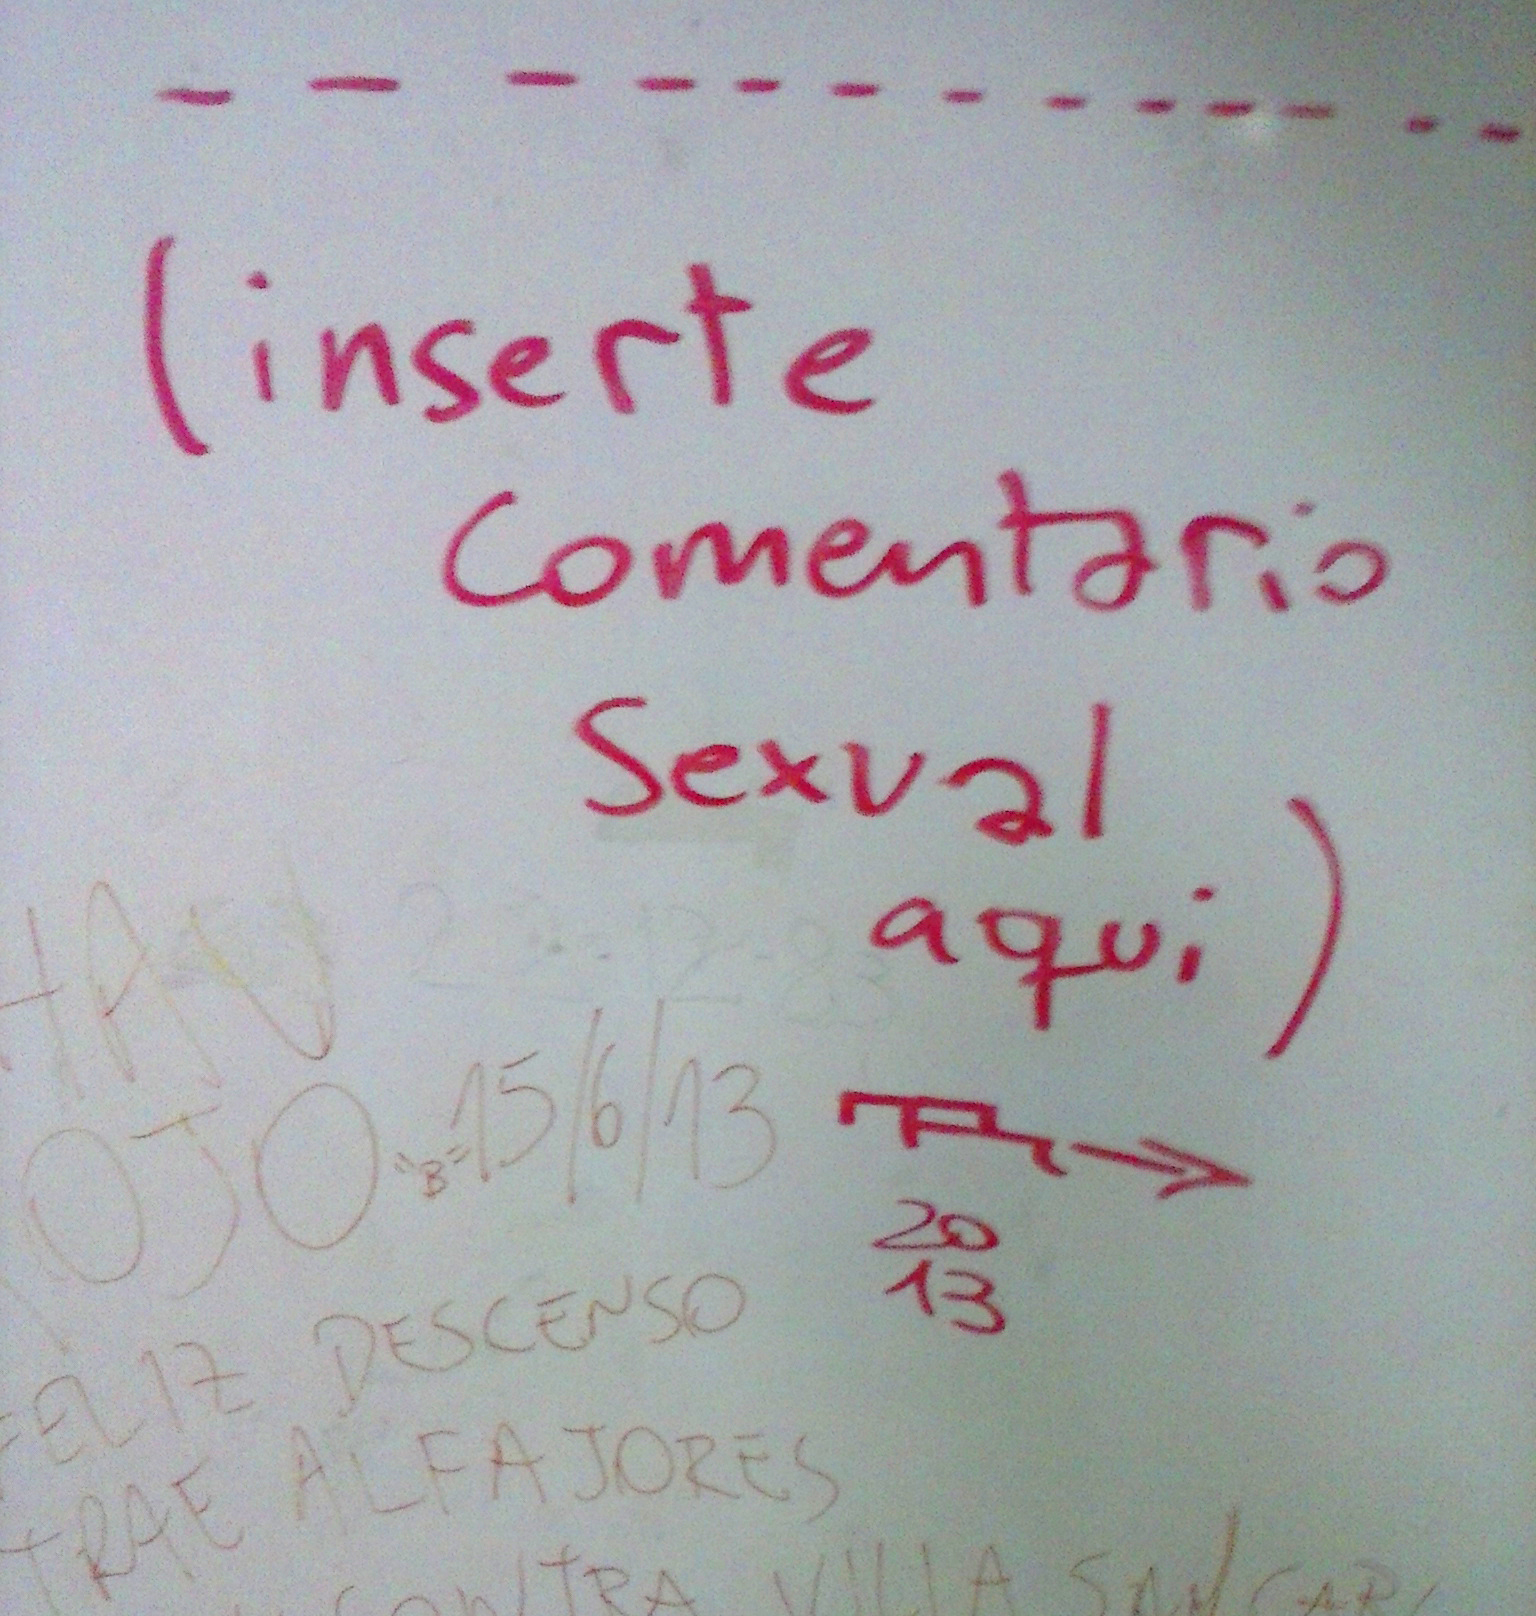 (inserte
comentario
sexual
aqui)
20
13
OJO "B"=15/6/13
FELIZ DESCENSO
TRAE ALFAJORES
CONTRA VILLA